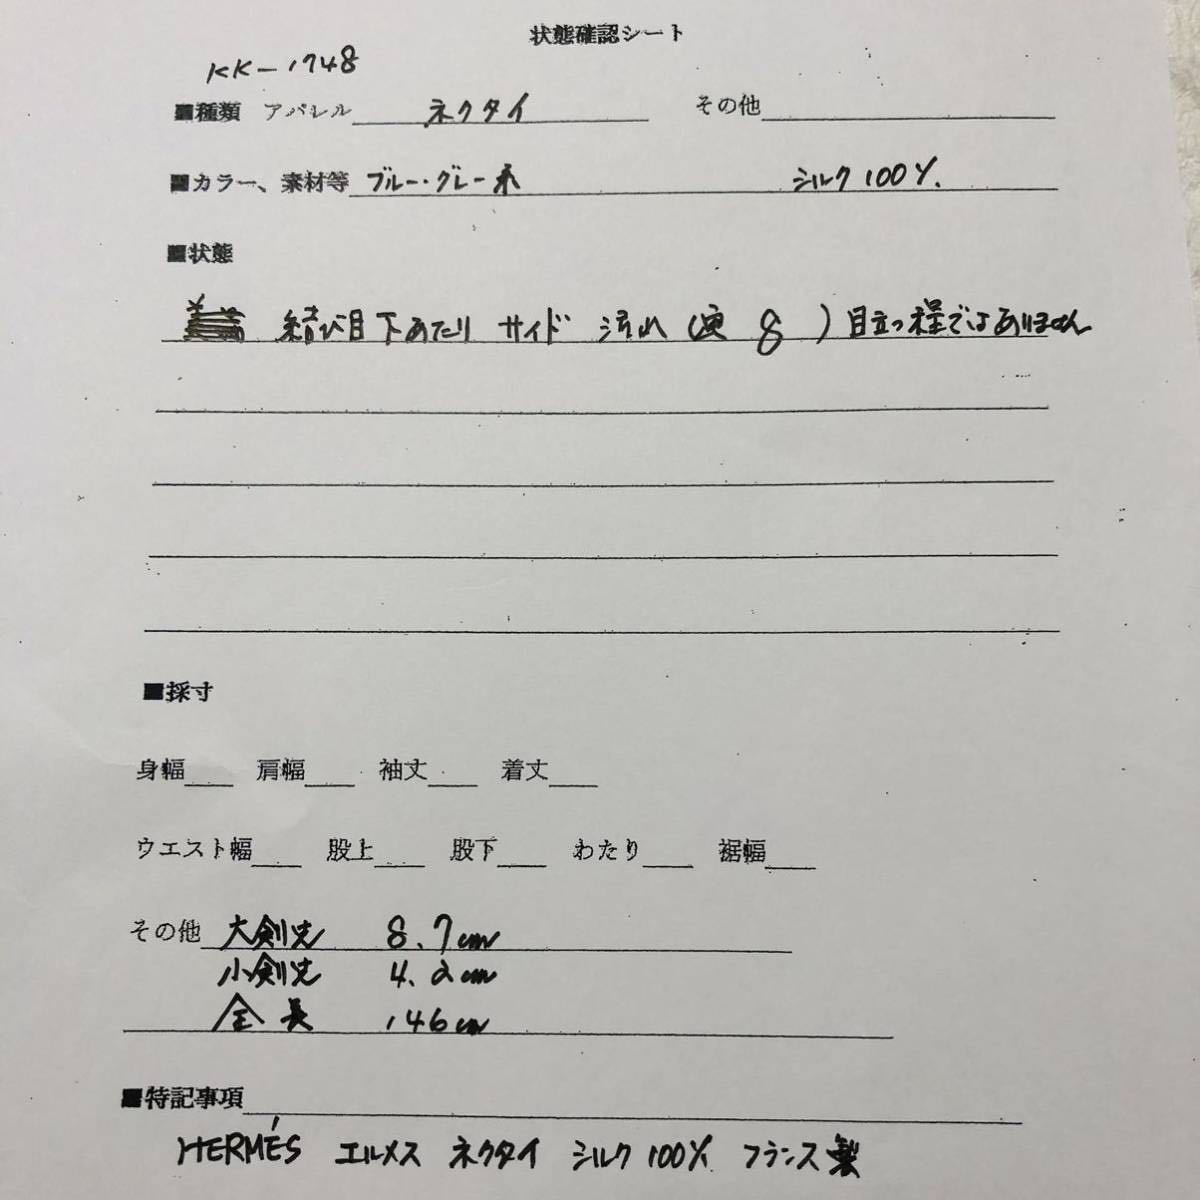 状態確認シート
KK-1748
■種類 アパレル ネクタイ その他
■カラー、素材等 ブルー・グレー系 シルク100%
■状態
結び目下あたり サイド 汚れ (画 8 ) 目立つ程ではありません
■採寸
身幅 肩幅 袖丈 着丈
ウエスト幅 股上 股下 わたり 裾幅
その他 大剣先 8.7cm
小剣先 4.2cm
全長 146cm
■特記事項
HERMÈS エルメス ネクタイ シルク100% フランス製